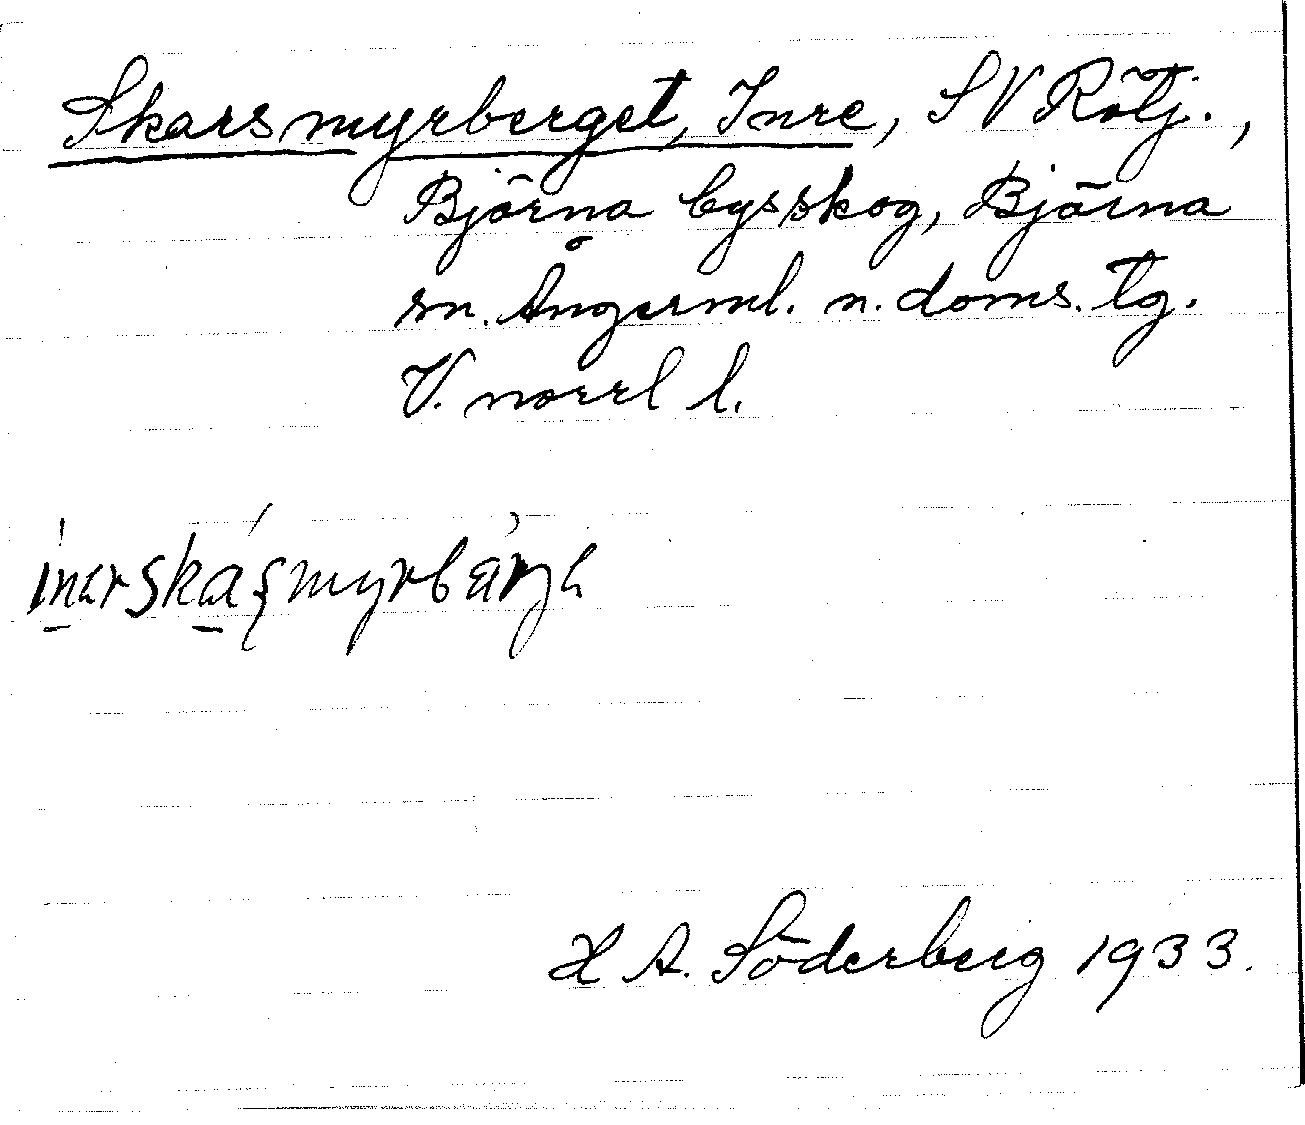 Skarsmyrberget, Inre, SV Rötj.,
Björna bysskog, Björna
sn. Ångerml. n. doms. tg.
V. norrl l.
H A. Söderberg 1933.